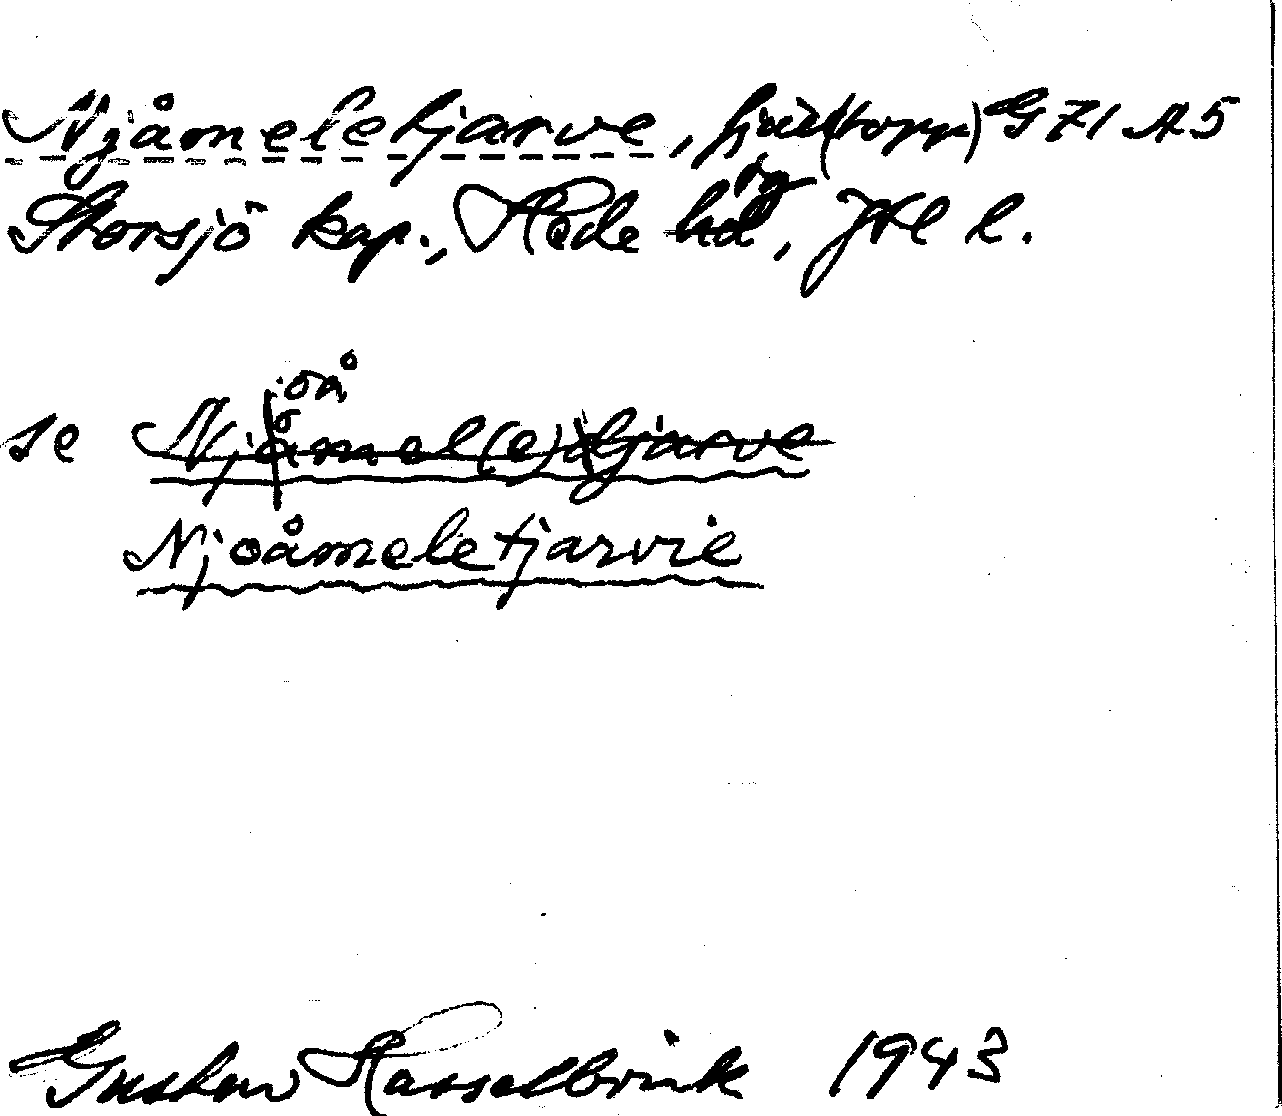 Njåmeletjarve, fjäll(topp) G 71 A 5
Storsjö kap., Hede hd, Jtl l.
se Njåmel(e)tjarve
Njoåmeletjarvie
Gustav Hasselbrink 1943